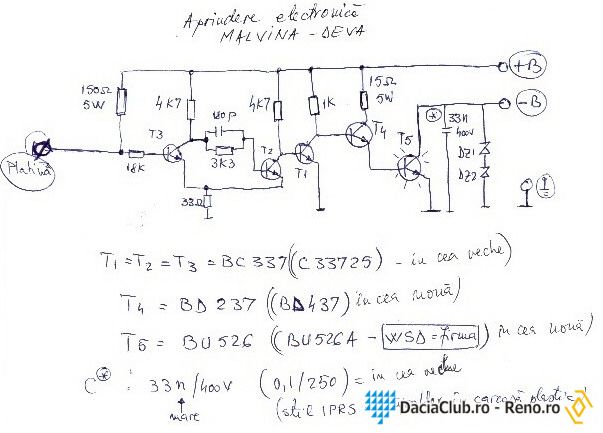 Aprindere electronică
MALVINA - DEVA
+B
-B
150Ω
5W
4K7
180p
4K7
1K
15Ω
5W
T3
T2
T1
T4
T5
*
33n
400V
DZ1
DZ2
Platină
18K
3K3
33Ω
T1 = T2 = T3 = BC 337 (C 33725) - în cea veche
T4 = BD 237 (BD 437) în cea nouă
T5 = BU 526 (BU526A - WSD = firma) în cea nouă
C* : 33n/400V (0,1/250) = în cea veche
mare
(stil IPRS în carcasă plastic)
DaciaClub.ro - Reno.ro